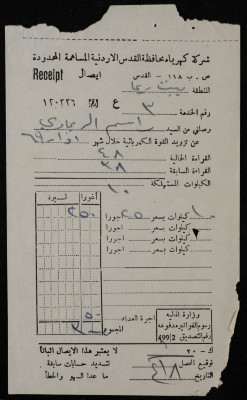 شركة كهرباء محافظة القدس الاردنية المساهمة المحدودة
ص . ب ١١٨ - القدس ايصال Receipt
المنطقة بيت ريما
رقم الخدمة ٣ ع ١٢٠٢٢٦
وصلني من السيد راسم الريماوي
عن تزويد القوة الكهربائية خلال شهر اذار ٦٩
القراءة الحالية ٤٨
القراءة السابقة ٣٨
الكيلوات المستهلكة ١٠
اغورا ليرة
١٠ كيلوات بسعر ٢٥ اجورا ٢٥٠
كيلوات بسعر اجورا
كيلوات بسعر اجورا
كيلوات بسعر اجورا
اجرة العداد ٥٠
المجموع ٣٠٠
وزارة المالية
رسوم الطوابع مدفوعة
رقم التصديق 499/2
لا يعتبر هذا الايصال اثباتا
لتسديد حسابات سابقة .
ما عدا السهو والخطأ
ك - ٢٠
توقيع المحصل
التاريخ ٤/٨